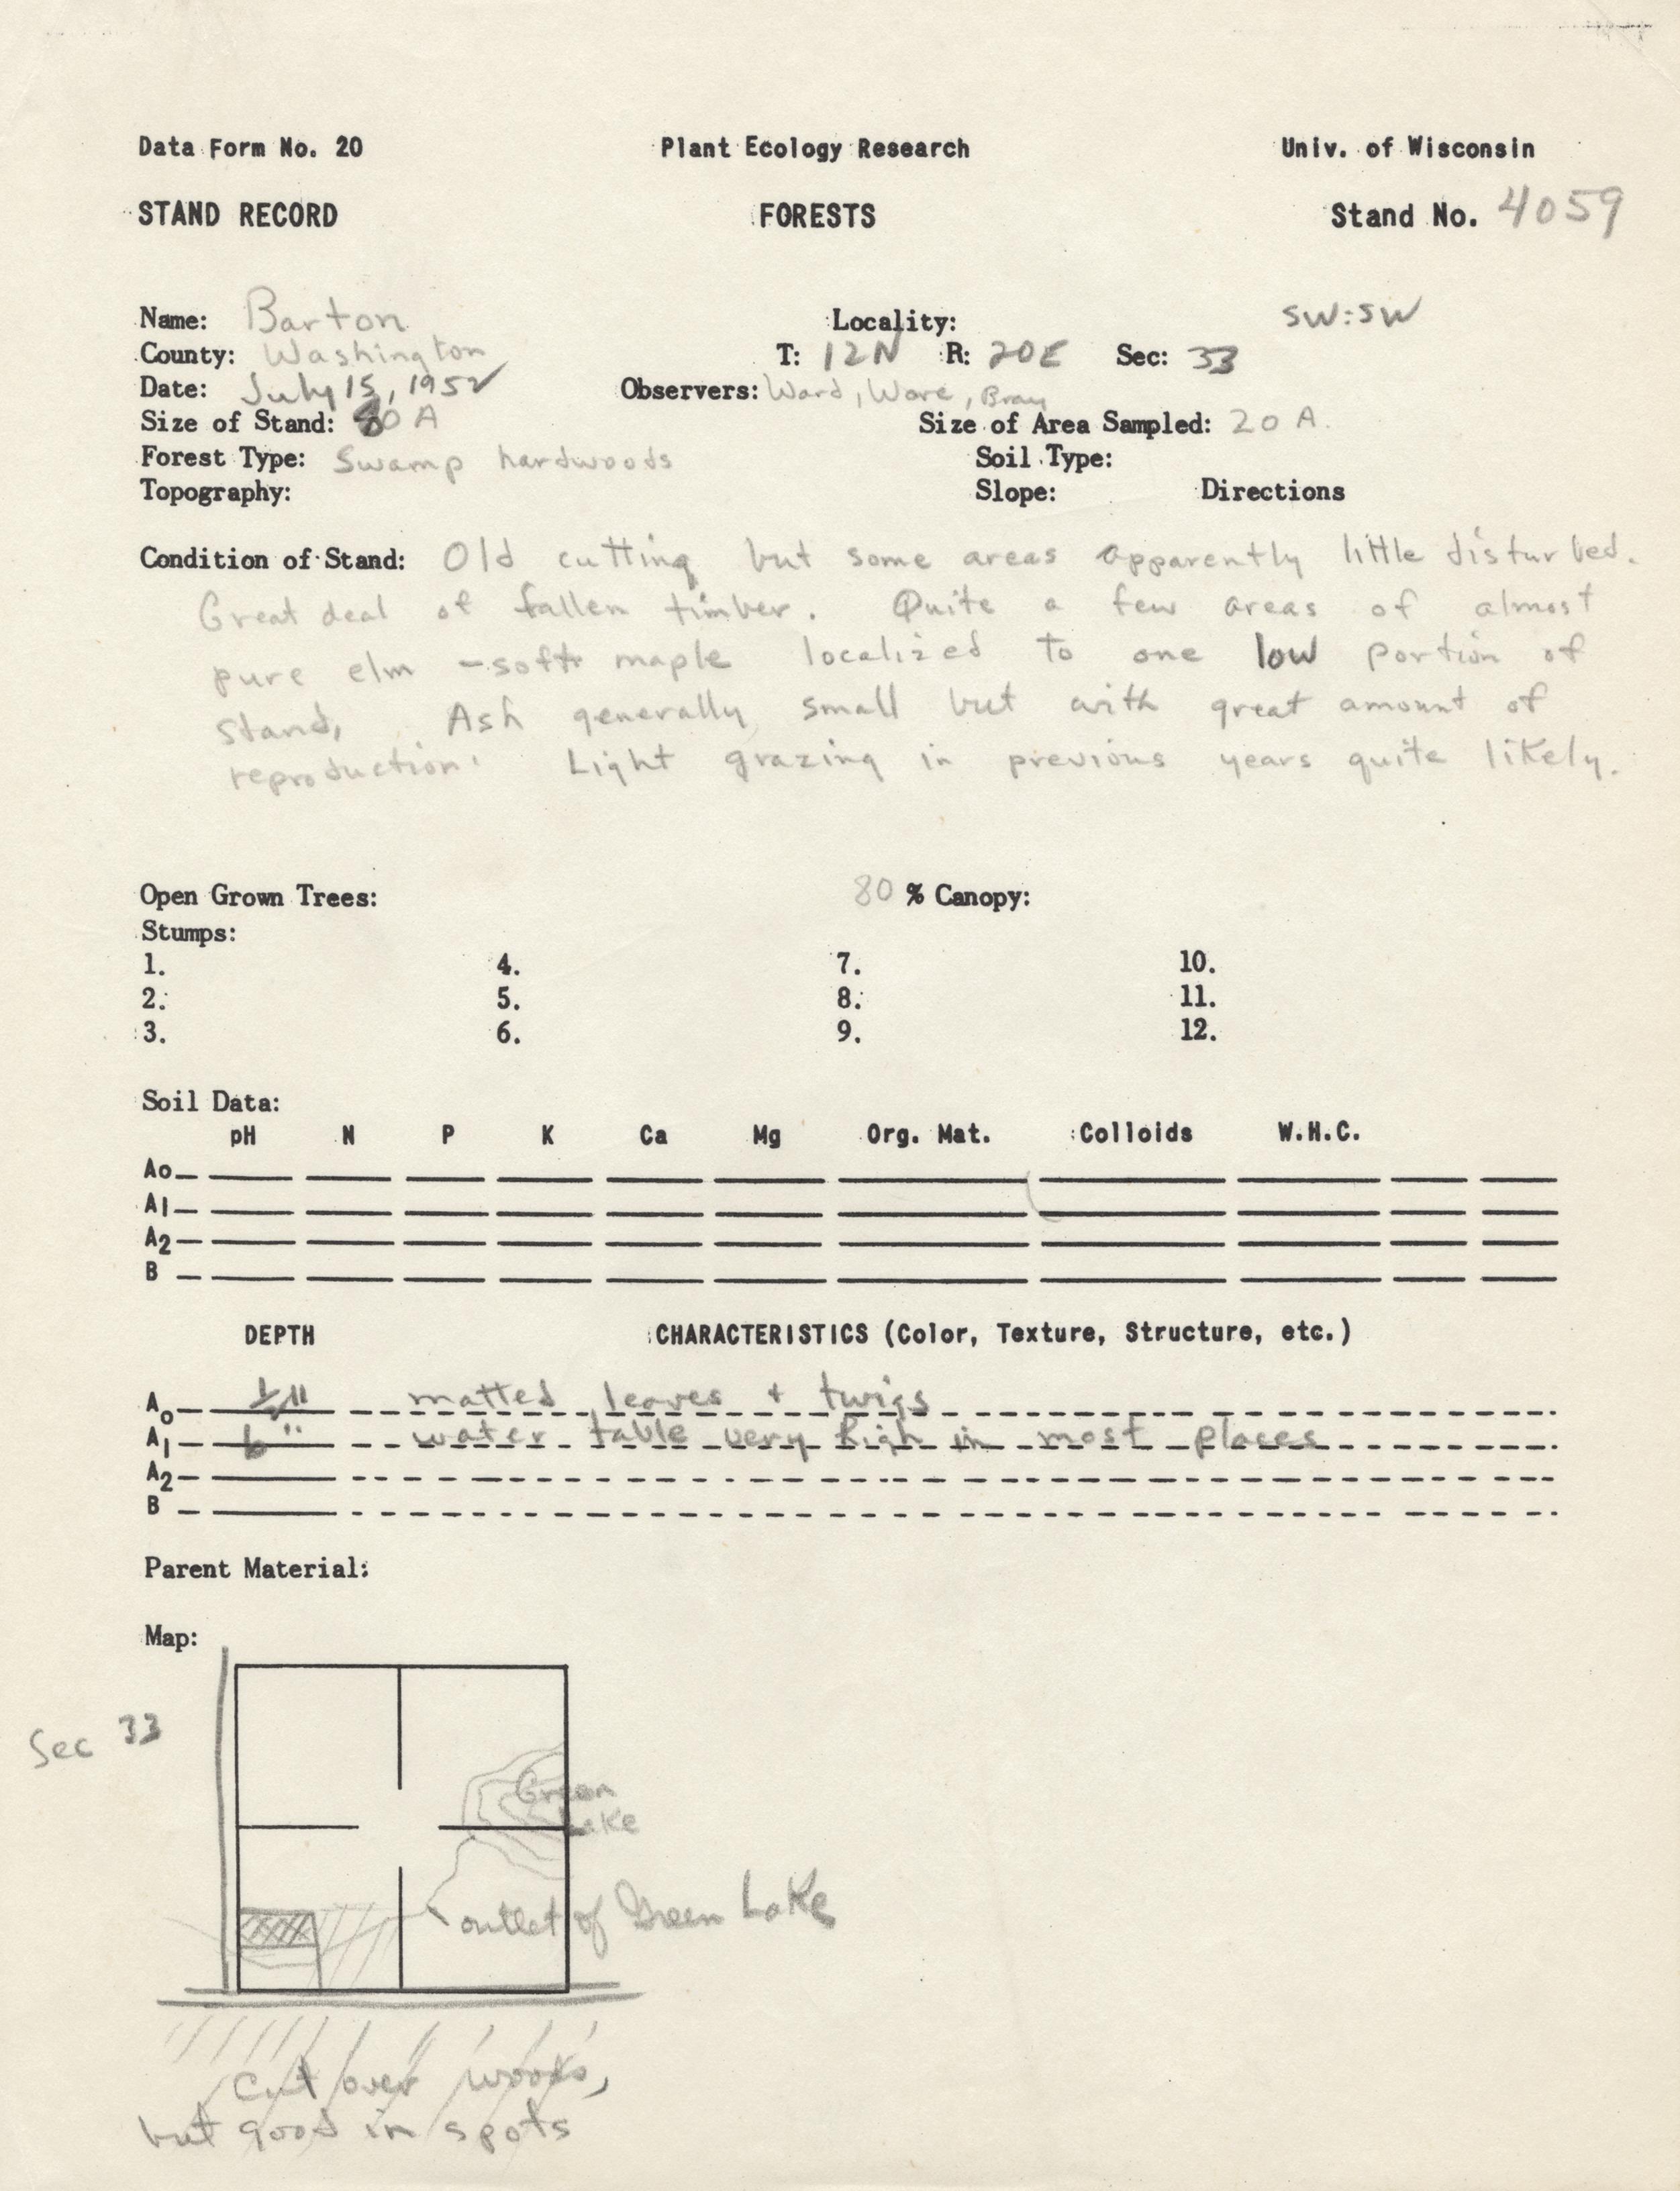 Data Form No. 20 Plant Ecology Research Univ. of Wisconsin
STAND RECORD FORESTS Stand No. 4059
Name: Barton Locality: SW:SW
County: Washington T: 12N R: 20E Sec: 33
Date: July 15, 1952 Observers: Ward, Ware, Bray
Size of Stand: 80 A Size of Area Sampled: 20 A.
Forest Type: Swamp hardwoods Soil Type:
Topography: Slope: Directions
Condition of Stand: Old cutting but some areas apparently little disturbed.
Great deal of fallen timber. Quite a few areas of almost
pure elm - soft maple localized to one low portion of
stand, Ash generally small but with great amount of
reproduction. Light grazing in previous years quite likely.
Open Grown Trees: 80 % Canopy:
Stumps:
1. 4. 7. 10.
2. 5. 8. 11.
3. 6. 9. 12.
Soil Data:
pH N P K Ca Mg Org. Mat. Colloids W.H.C.
Ao
A1
A2
B
DEPTH CHARACTERISTICS (Color, Texture, Structure, etc.)
Ao ½" matted leaves + twigs
A1 6" water table very high in most places
A2
B
Parent Material:
Map:
Sec 33
Green
Lake
outlet of Green Lake
cut over woods,
but good in spots